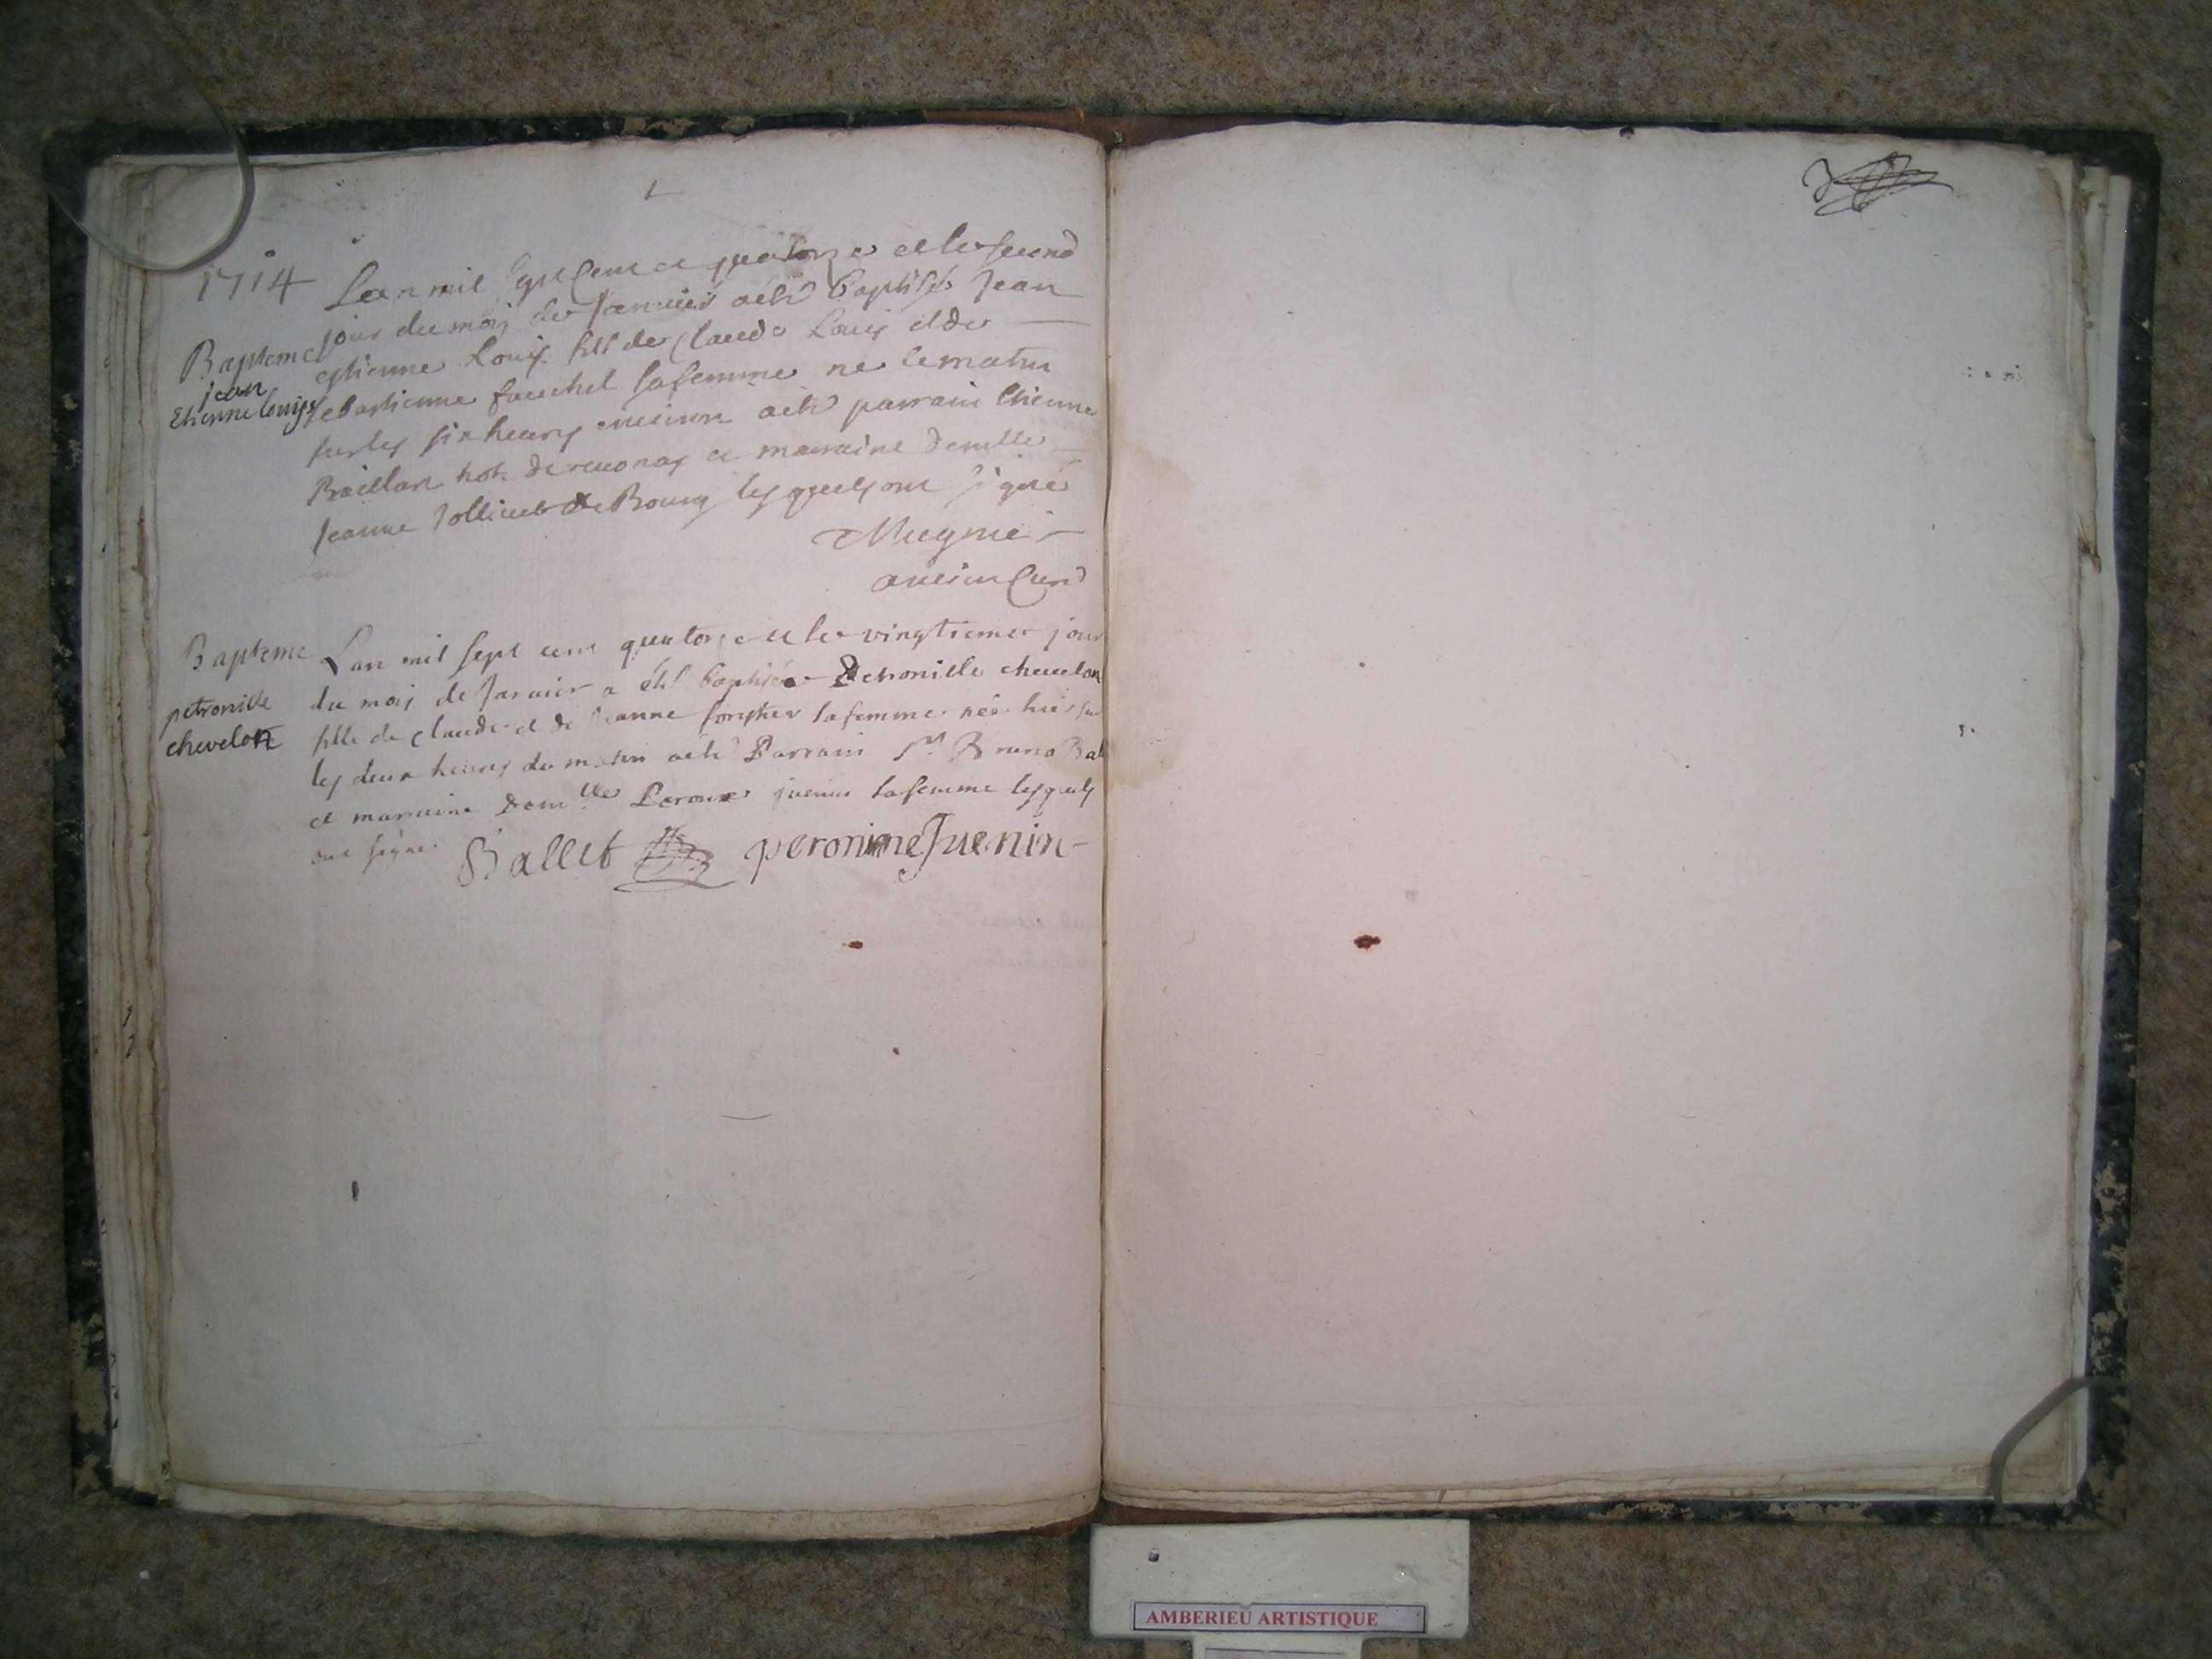 1714
Lan mil sept cent et quatorze et le second
jour du mois de Janvier a eté baptisé Jean
Bapteme
jean
Etienne louis
estienne Louis fils de Claude Louis et de
sebastienne fauchet sa femme ne le matin
sur les six heures environ a eté parrain Etienne
Braillon hot. de revonas et marraine demlle
Jeanne Jollivet de Bourg lesquels ont signé
Mugnie
ancien Curé
Bapteme
petronille
chevelon
Lan mil sept cent quatorze et le vingtieme jour
du mois de Janvier a été baptisée Petronille chevelon
fille de claude et de Jeanne sa femme née hier sur
les deux heures du matin a eté Parrain Sr Bruno Bal
et marraine Demlle juenin sa femme lesquels
ont signe.
Ballet peronime Juenin
AMBERIEU ARTISTIQUE